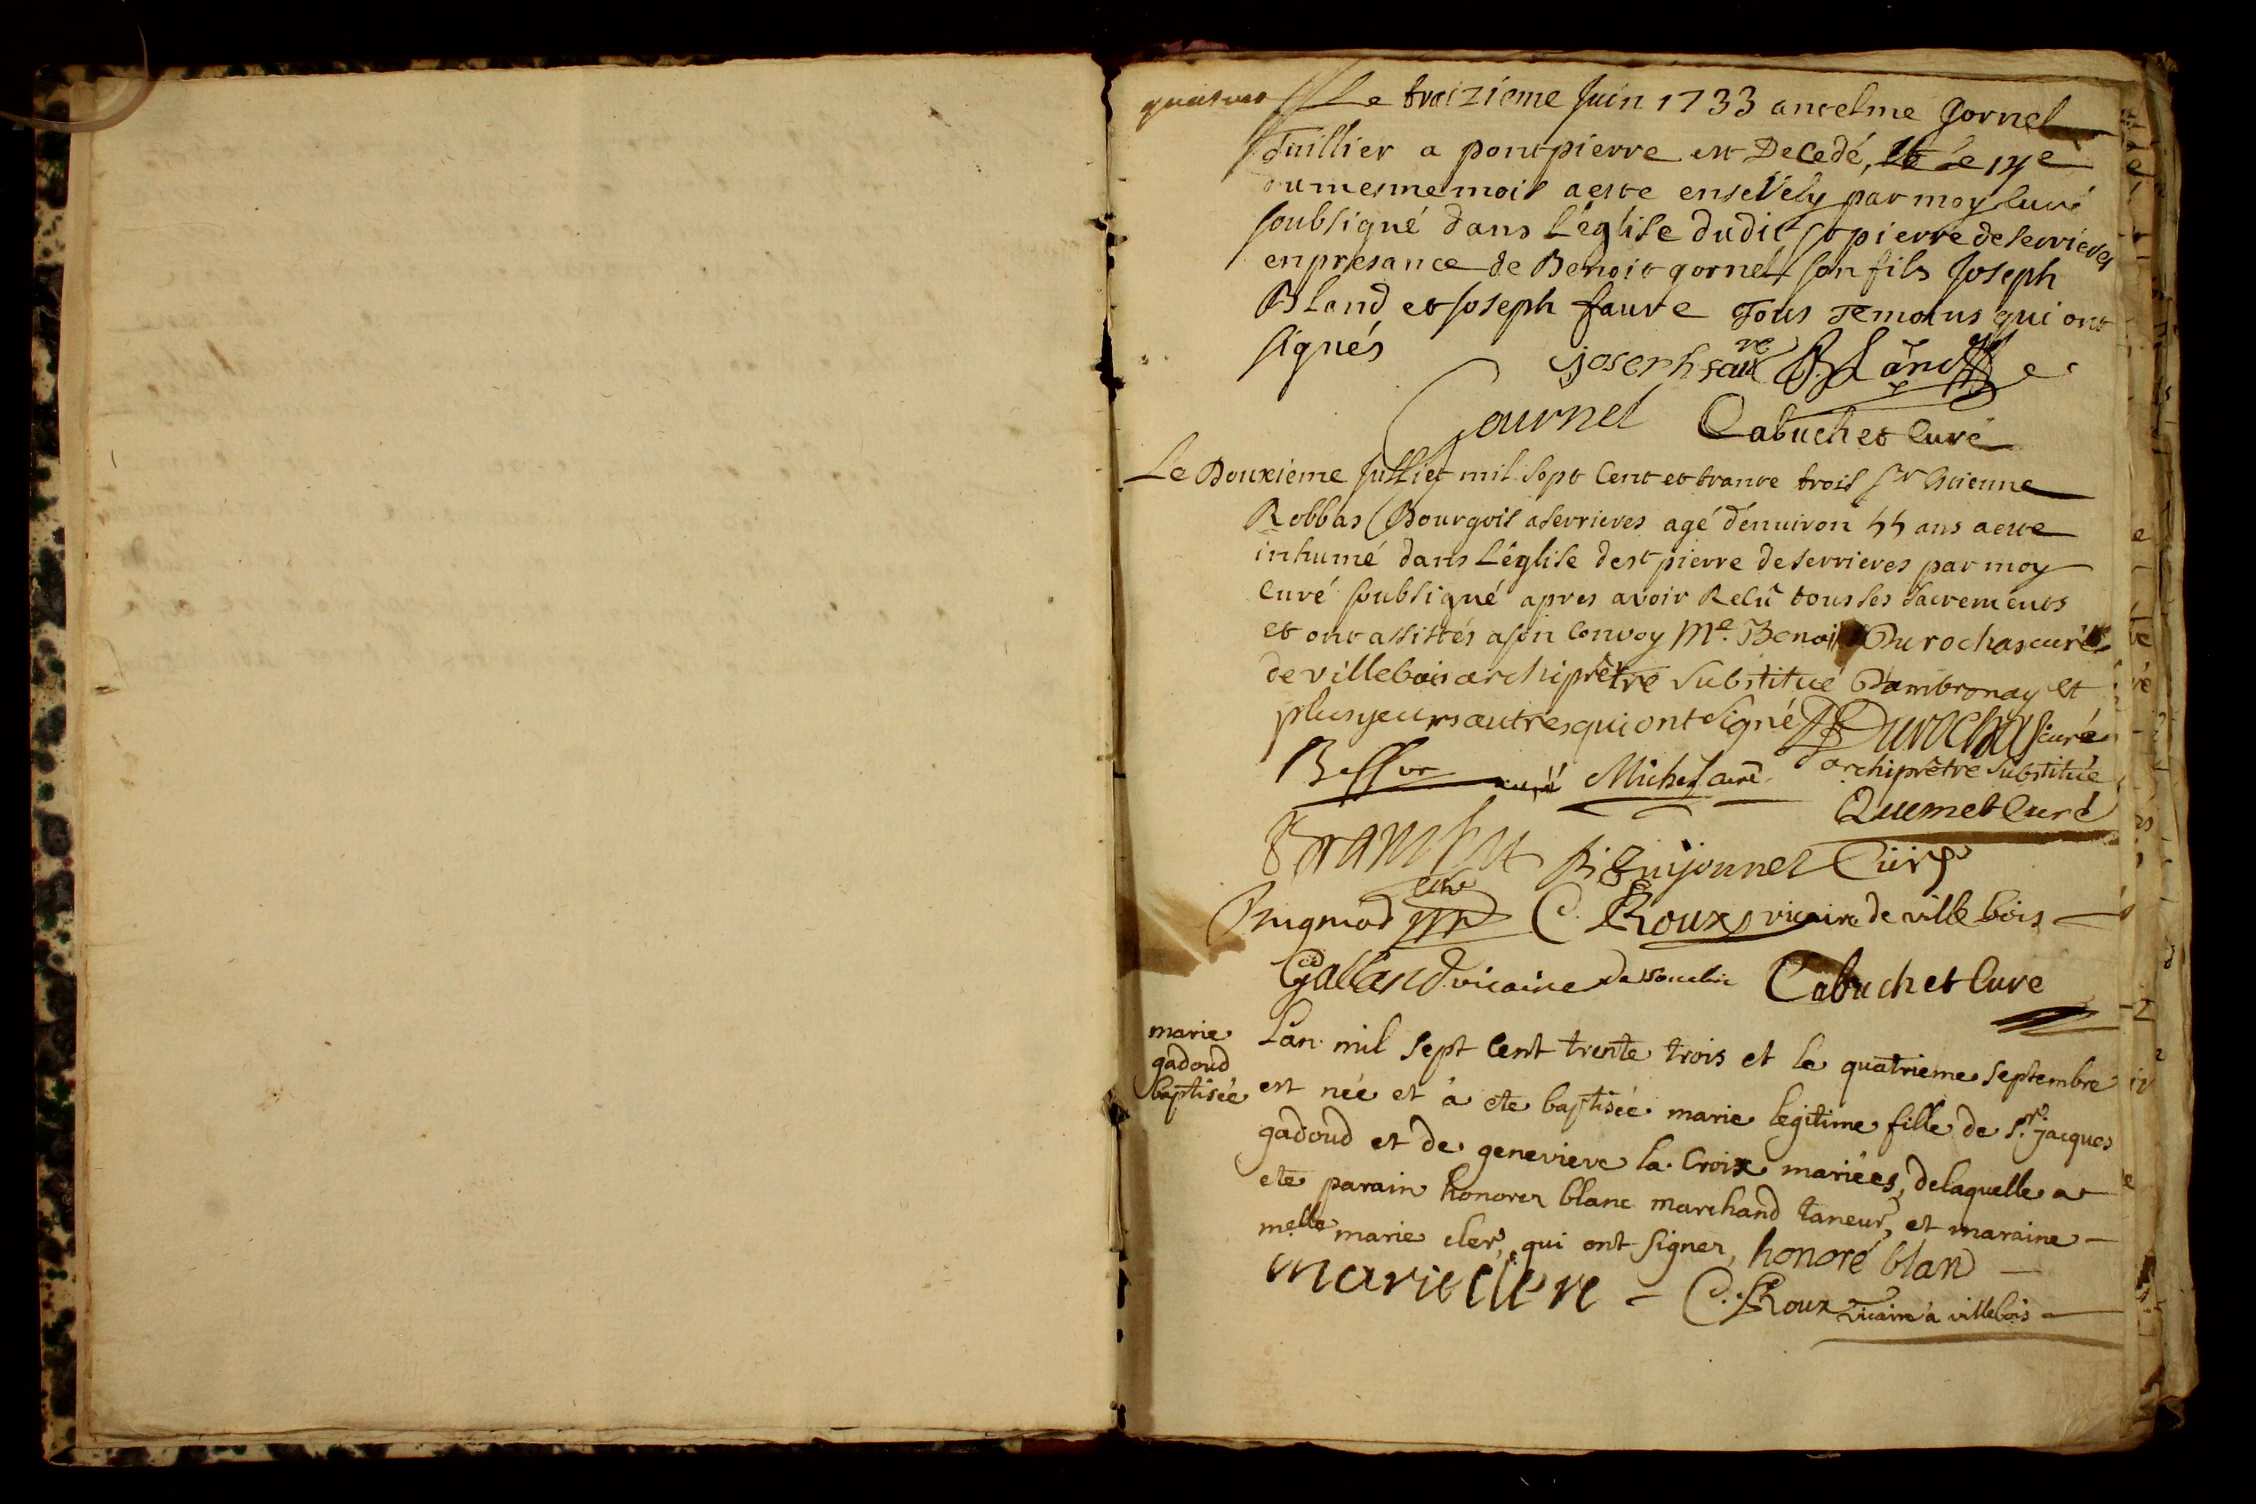 Le treizieme Juin 1733 ancelme Gornel
Tuillier a pontpierre est Decedé, et le 14e
du mesme mois a este ensevely par moy curé
soubsigné dans L'église dudit st pierre de serrieres
en presance de Benoit gornel son fils Joseph
Bland et Joseph fauve Tous Temoins qui ont
signés
joseph fauve Bland
Gournel Cabuchet Curé
Le Douxieme Julliet mil sept Cent et trante trois sr Etienne
Robbas Bourgois a serrieres agé d'enuiron 55 ans a este
inhumé dans L'église de st pierre de serrieres par moy
Curé soubsigné apres avoir Relû tous les sacrements
et ont assistés a son Convoy Me. Benoit Durochas curé
de villebois archiprêtre substitué D'ambronay et
plusyeurs autres qui ont signé Durochas curé
archiprêtre substitué
curé Michel curé
Quemet Curé
B Guijonnet Curé
curé
C. Roux vicaire de villebois
Galland vicaire de souclin Cabuchet Cure
marie
gadoud
baptisée
L'an mil sept Cent trente trois et le quatrieme septembre
est née et à ete baptisée marie legitime fille de sr. jacques
gadoud et de genevieve la Croix mariées, delaquelle a
ete parain honorer blanc marchand taneur, et maraine
melle marie cler, qui ont signer, honoré bland
marie clere C. Roux vicaire a villebois